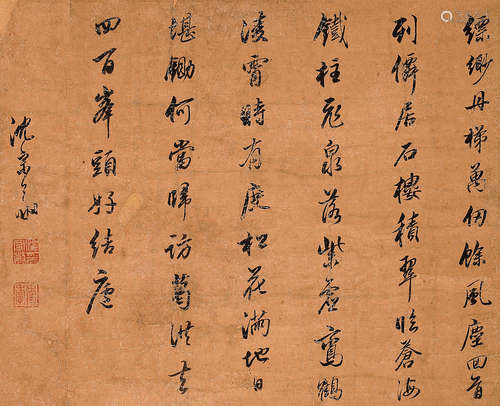 縹緲丹梯萬仞餘風塵回首
列僊居石樓積翠臨蒼海
鐵柱飛泉落紫虛鸞鶴
淩霄時有鹿松花滿地日
堪鋤何當歸訪葛洪去
四百峰頭好結廬
沈宗敬